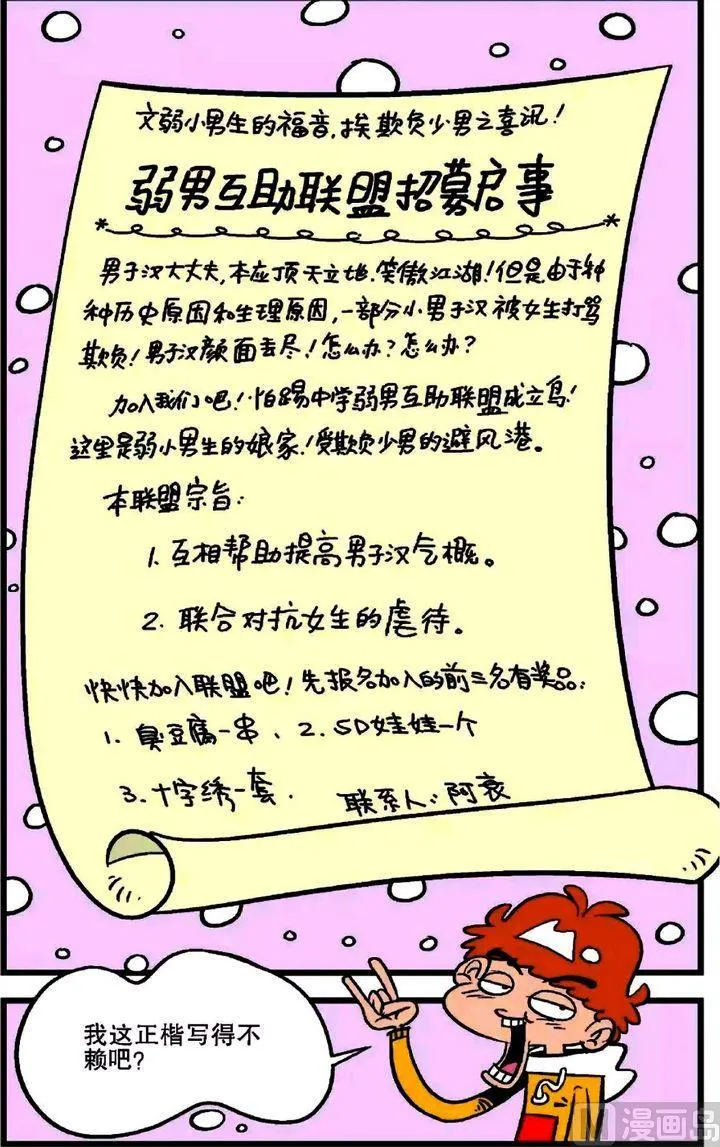 文弱小男生的福音,挨欺负少男之喜讯!
弱男互助联盟招募启事
男子汉大丈夫,本应顶天立地.笑傲江湖!但是由于种
种历史原因和生理原因,一部分小男子汉被女生打骂
欺负!男子汉颜面丢尽!怎么办?怎么办?
加入我们吧!怕踢中学弱男互助联盟成立鸟!
这里是弱小男生的娘家!受欺负少男的避风港。
本联盟宗旨:
1.互相帮助提高男子汉气概。
2.联合对抗女生的虐待。
快快加入联盟吧!先报名加入的前三名有奖品:
1.臭豆腐一串、2.SD娃娃一个
3.十字绣一套. 联系人:阿衰
我这正楷写得不
赖吧?
漫画岛